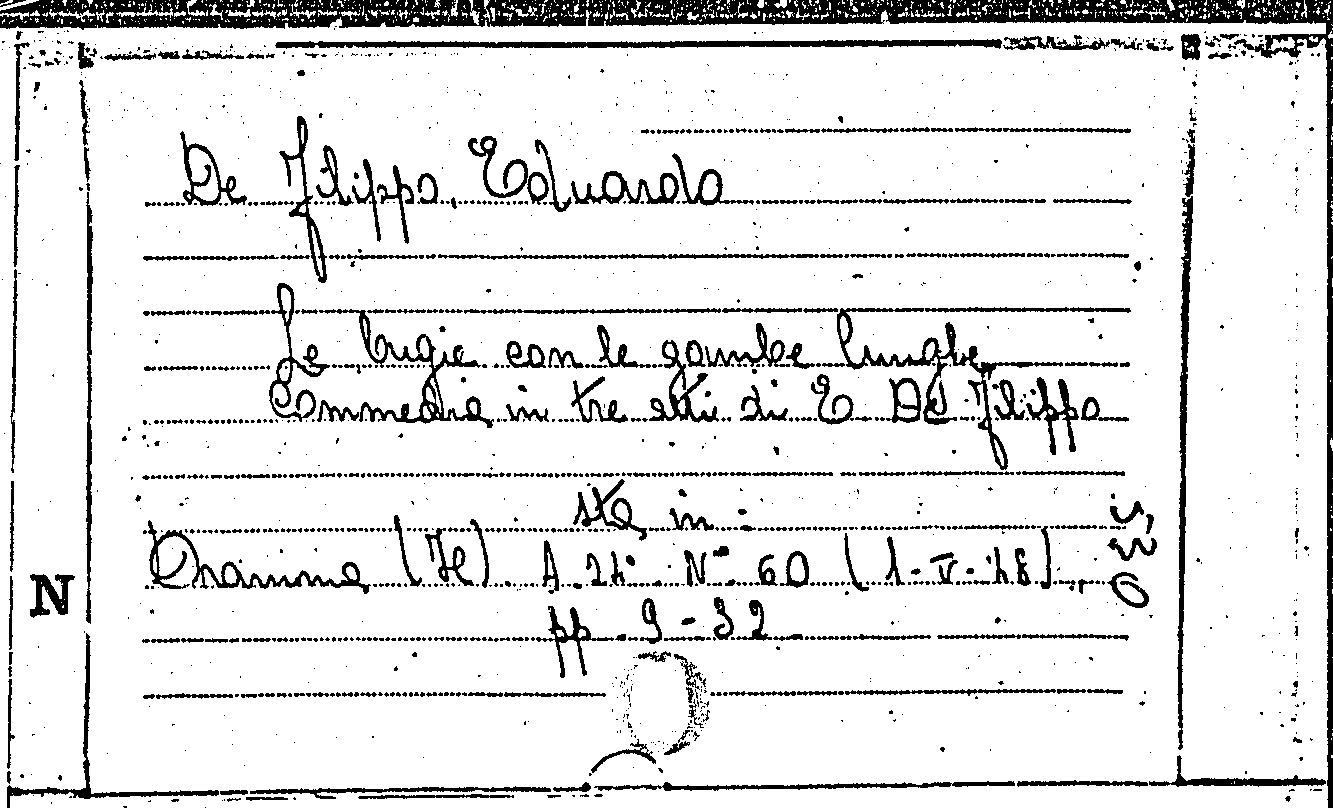 De Filippo, Eduardo
Le bugie con le gambe lunghe,
Commedia in tre atti di E. De Filippo
sta in:
Dramma (Il). A. 24°. N° 60 (1-V-48).,
pp. 9-32.
N